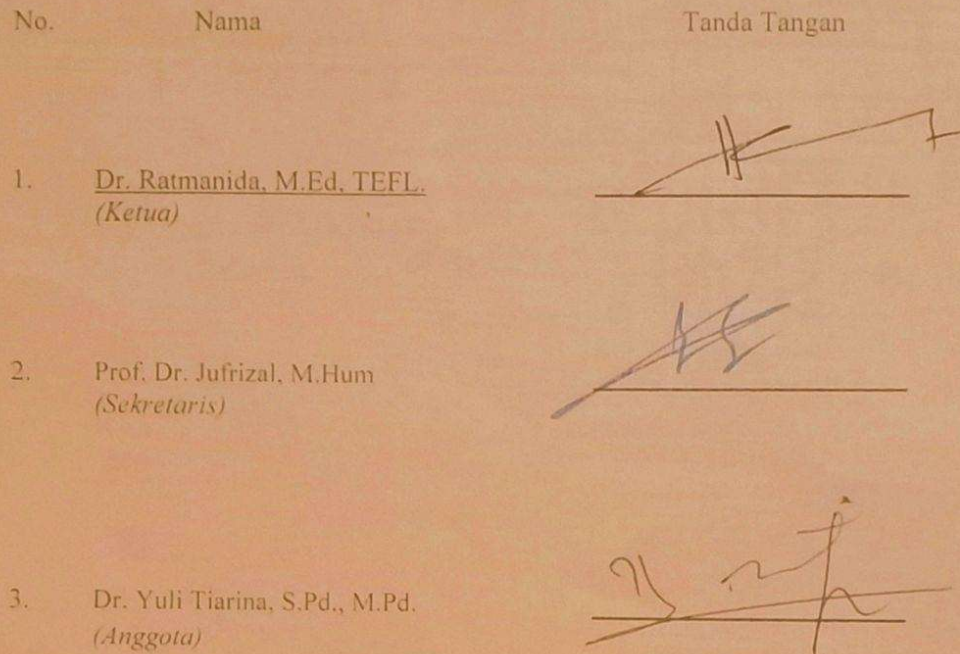 No. Nama Tanda Tangan
1. Dr. Ratmanida, M.Ed, TEFL.
(Ketua)
2. Prof. Dr. Jufrizal, M.Hum
(Sekretaris)
3. Dr. Yuli Tiarina, S.Pd., M.Pd.
(Anggota)